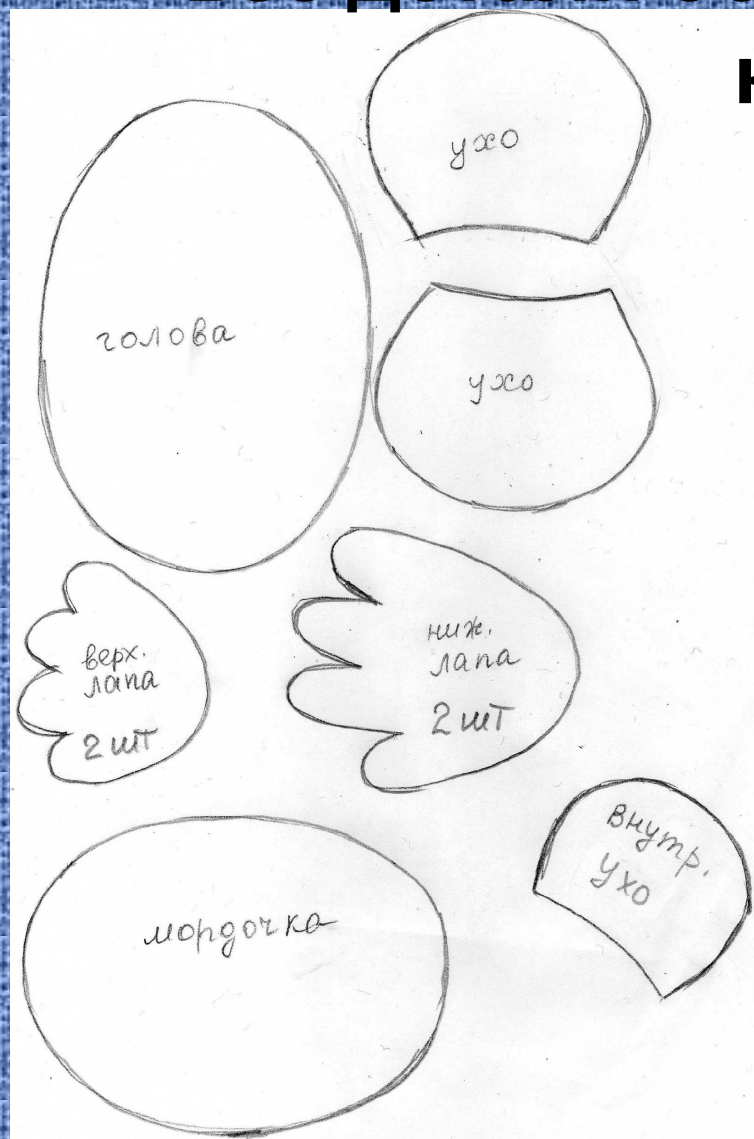 ухо
голова
ухо
верх.
лапа
2 шт
ниж.
лапа
2 шт
внутр.
ухо
мордочка